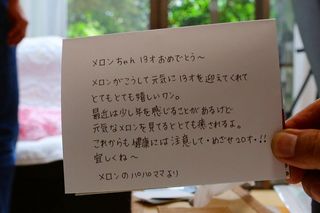 メロンちゃん 13才おめでとう〜
メロンがこうして元気に13才を迎えてくれて
とてもとても嬉しいワン。
最近は少し年を感じることがあるけど
元気なメロンを見てるととても癒されるよ。
これからも健康には注意して・めざせ20才・!!
宜しくね〜
メロンのパパママより